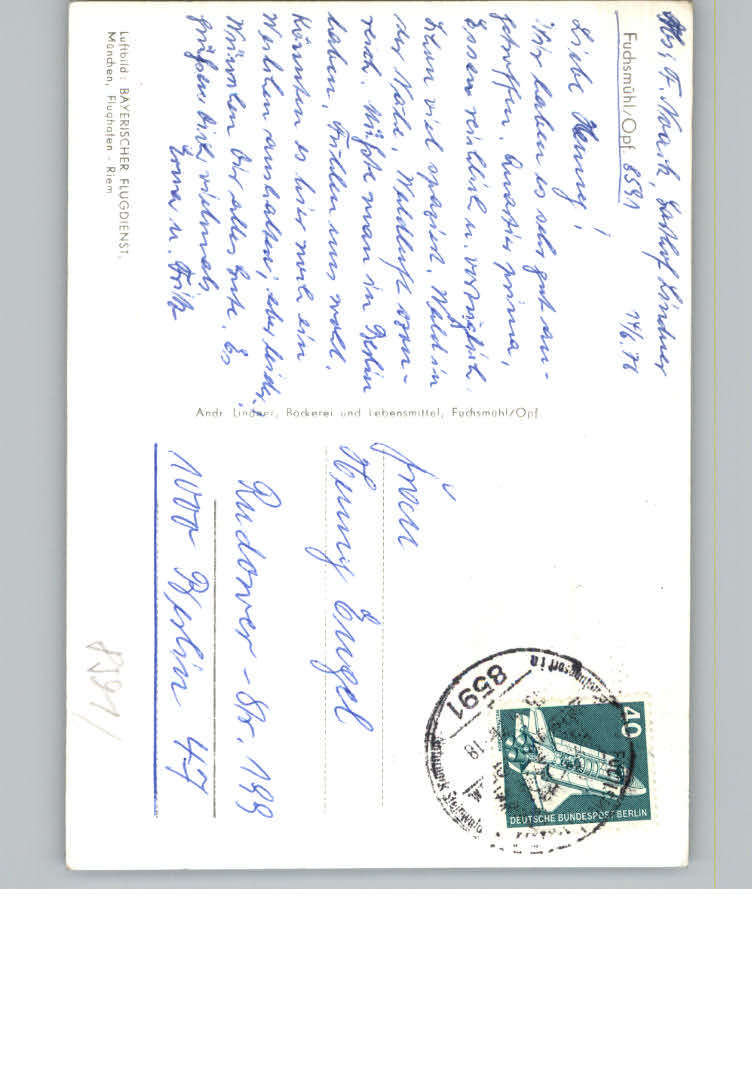 Abs. F. Noack, Gasthof Lindner
Fuchsmühl/Opf. 8591
14/6.76
Liebe Henny!
Wir haben es sehr gut an-
getroffen. Quartier prima,
Essen reichlich u. vorzüglich.
Schon viel spaziert. Wald in
der Nähe, Waldluft ozon-
reich. Müßte man in Berlin
haben. Fühlen uns wohl.
Könnten es hier noch ein
Weilchen aushalten, aber leider.
Wünschen Dir alles Gute. Es
grüßen Dich vielmals
Erna u. Fritz
Luftbild: BAYERISCHER FLUGDIENST,
München, Flughafen - Riem
Andr. Lindner, Bäckerei und Lebensmittel, Fuchsmühl/Opf.
Frau
Henny Engel
Rudower-Str. 199
1000 Berlin 47
8591
40
DEUTSCHE BUNDESPOST BERLIN
8591
18
Naturpark Steinwald